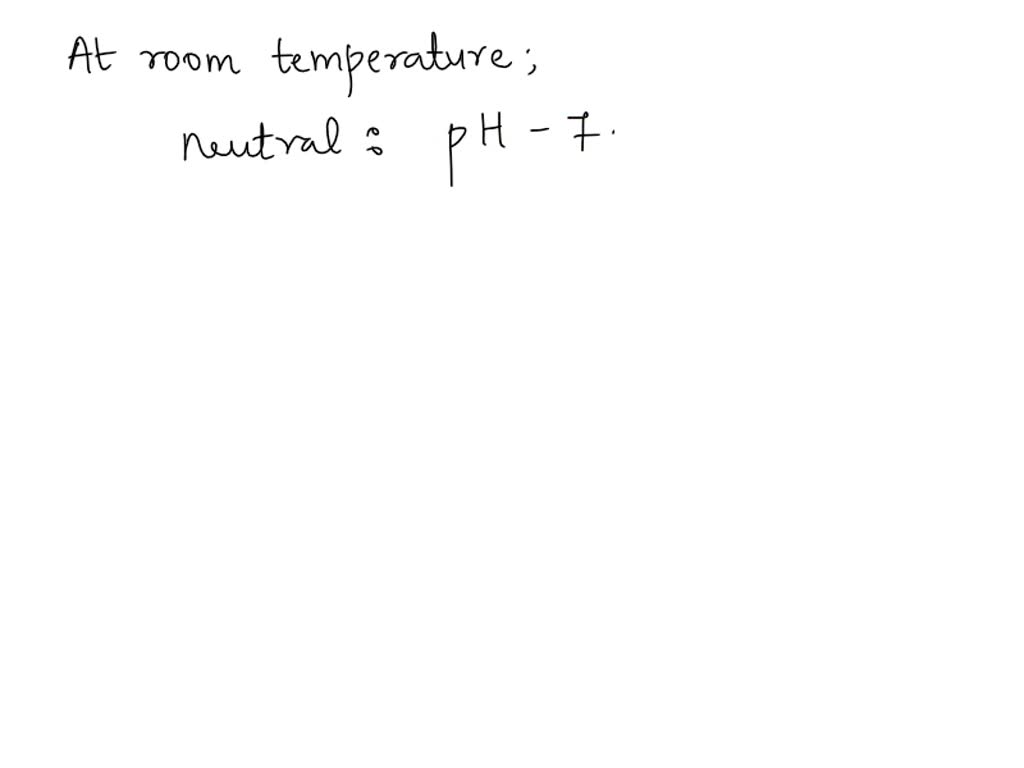 At room temperature;
neutral : pH - 7.